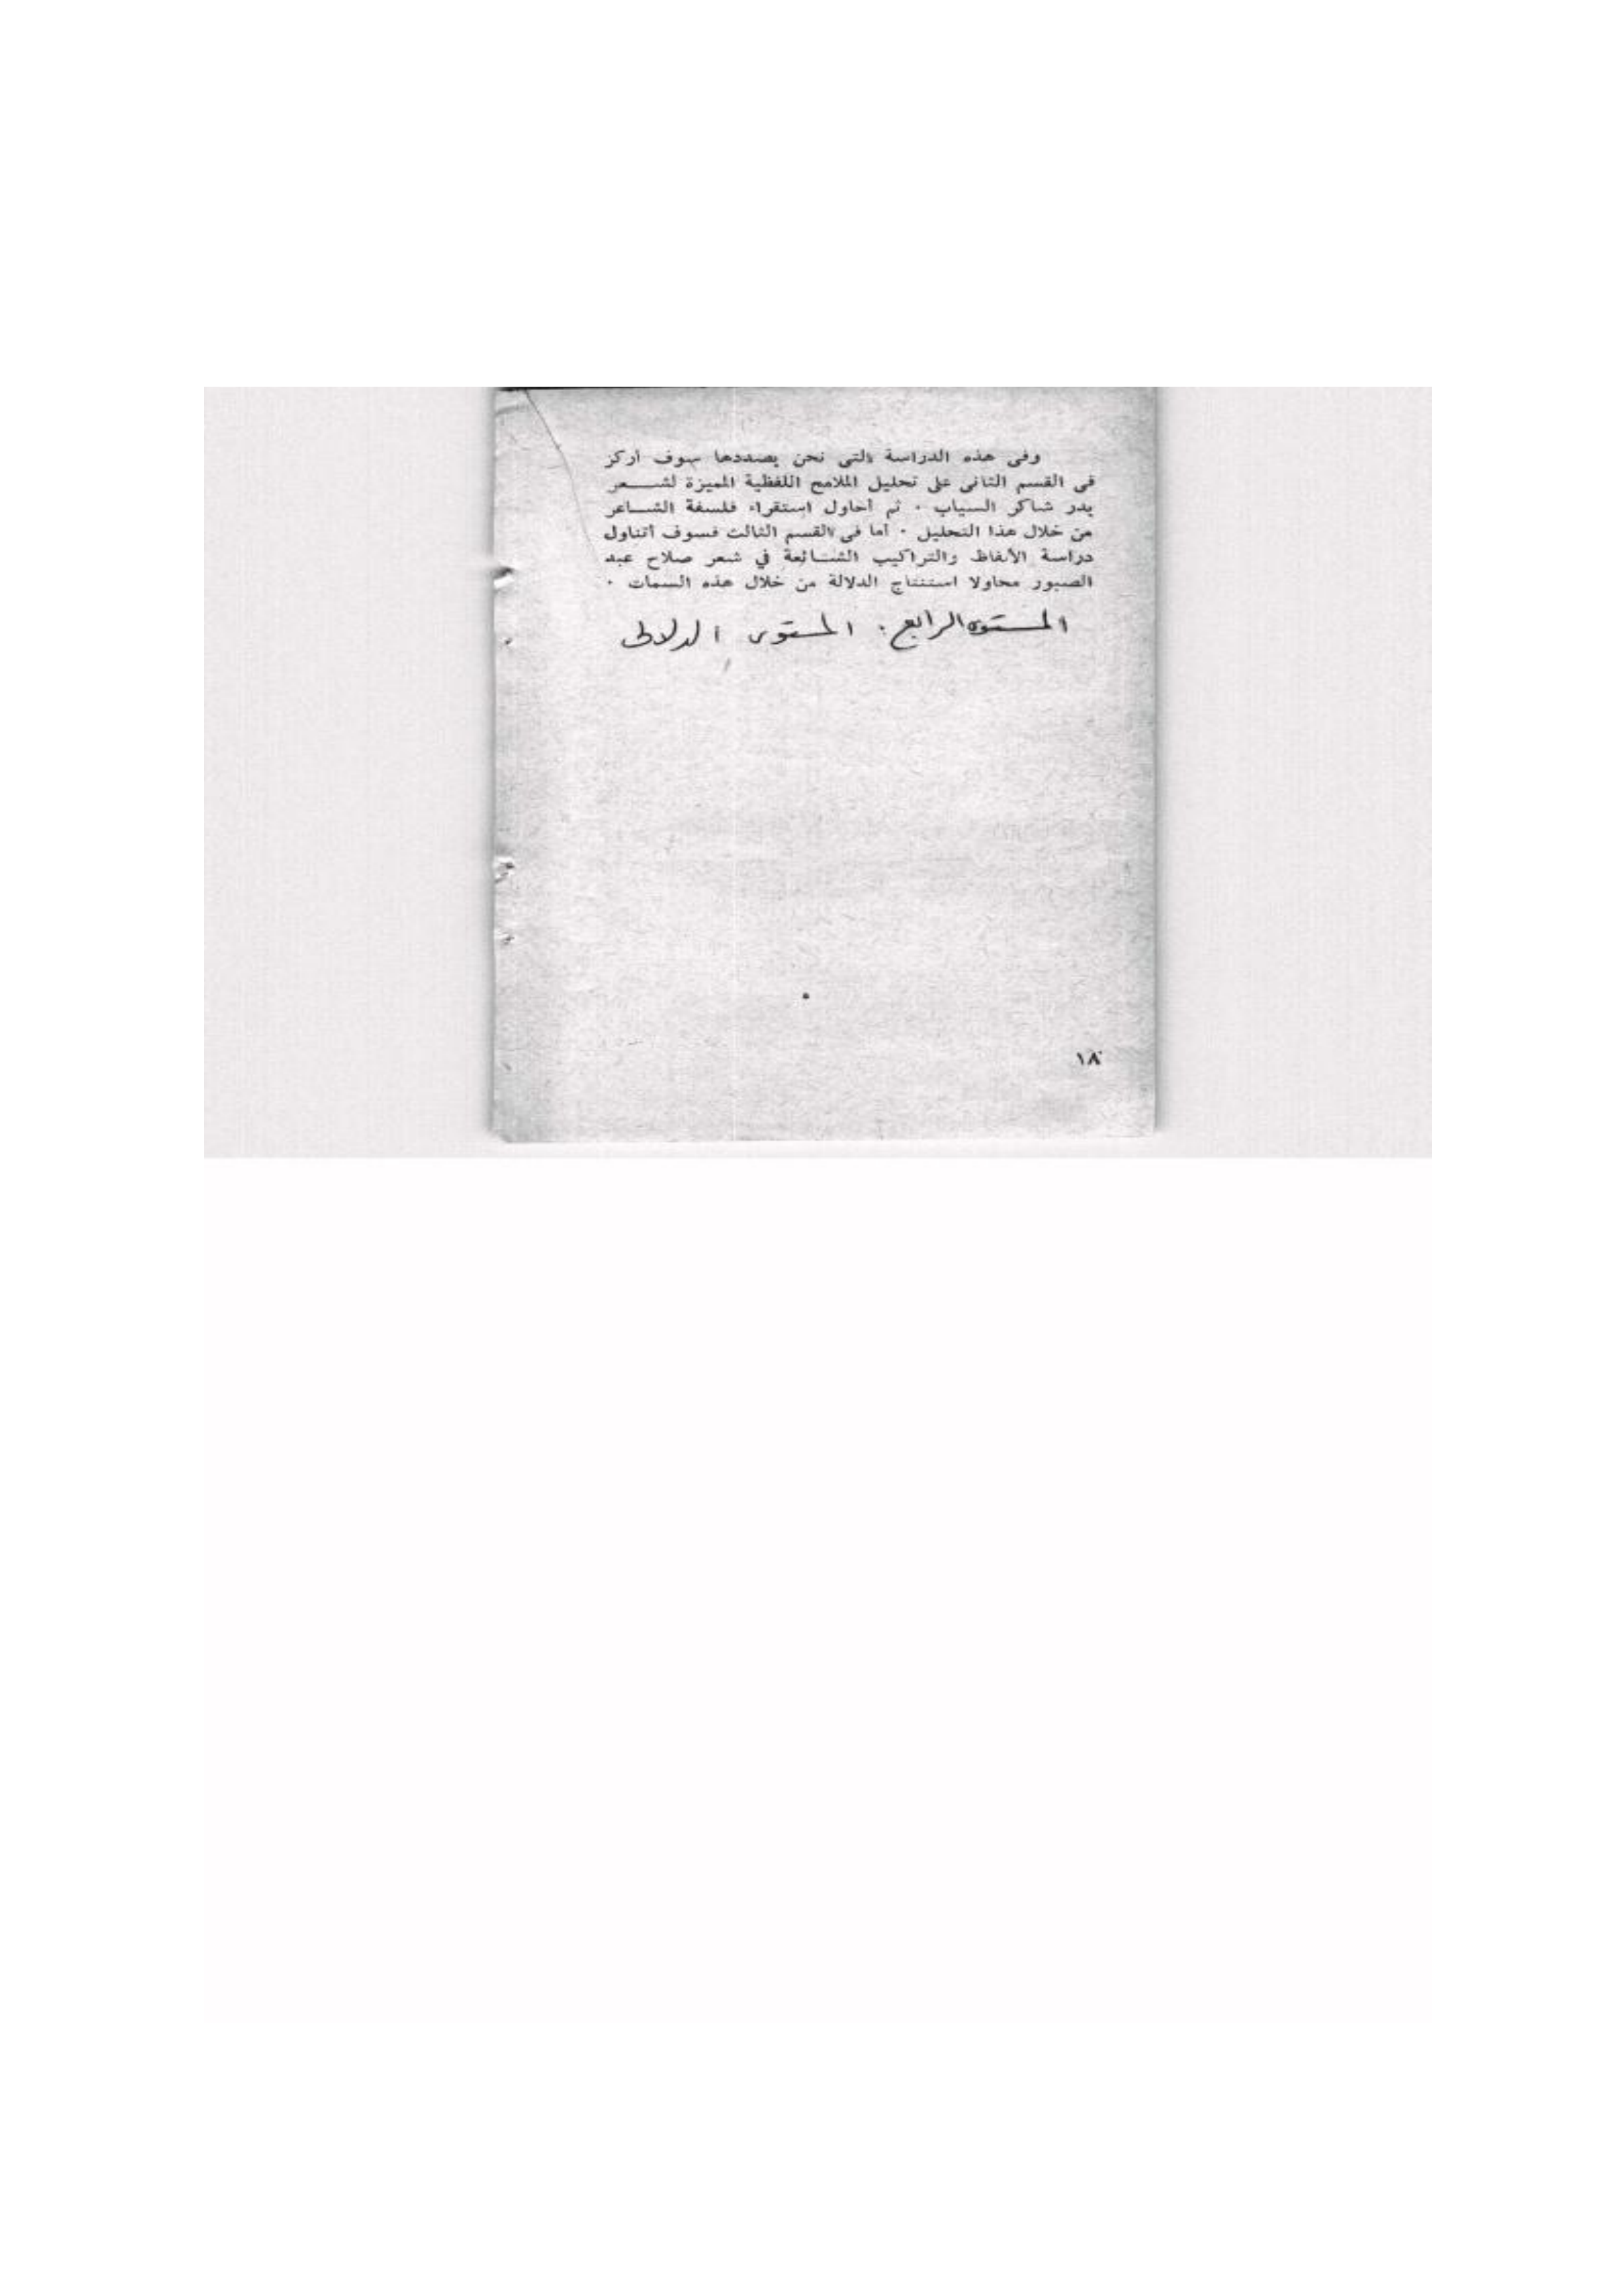 وفى هذه الدراسة التى نحن بصددها سوف أركز
فى القسم الثانى على تحليل الملامح اللفظية المميزة لشـــعر
بدر شاكر السياب ٠ ثم أحاول استقراء فلسفة الشـــاعر
من خلال هذا التحليل ٠ أما فى القسم الثالث فسوف أتناول
دراسة الألفاظ والتراكيب الشـــائعة في شعر صلاح عبد
الصبور محاولا استنتاج الدلالة من خلال هذه السمات ٠
المستوى الرابع: المستوى الدلالى
١٨